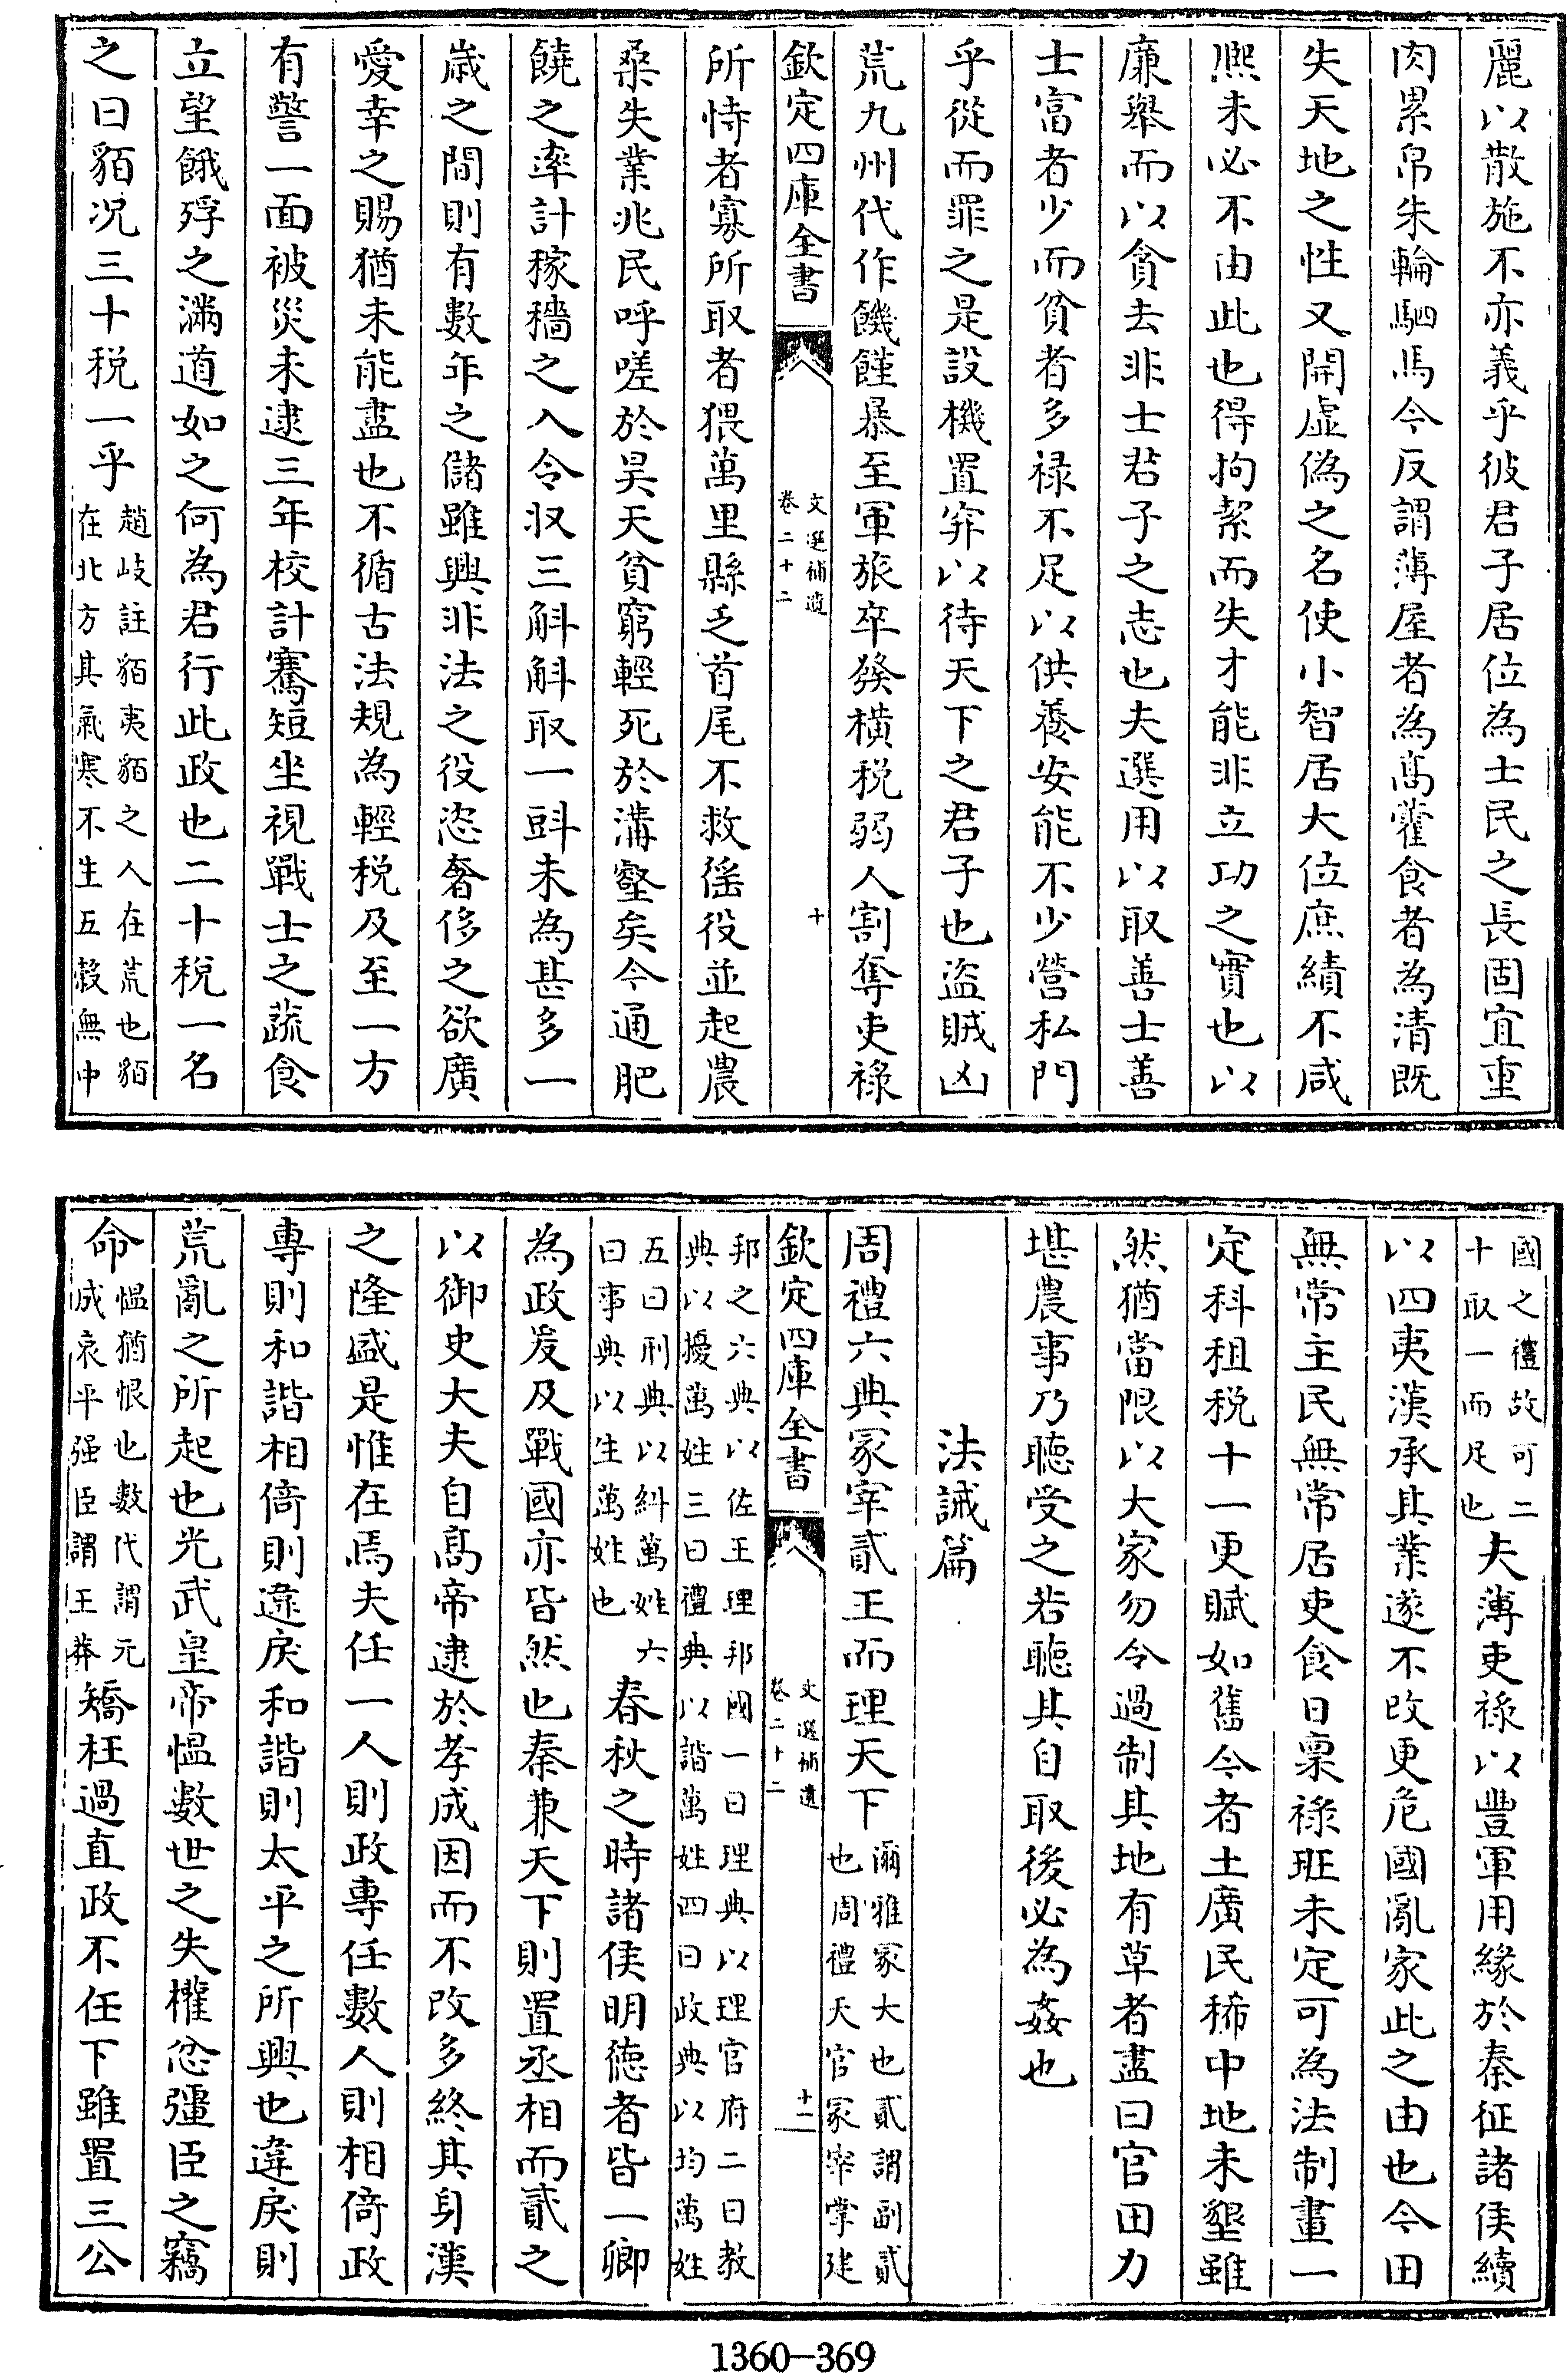 麗以散施不亦義乎彼君子居位為士民之長固宜重
肉累帛朱輪駟馬今反謂薄屋者為髙藿食者為清既
失天地之性又開虚偽之名使小智居大位庶績不咸
熈未必不由此也得拘絜而失才能非立功之實也以
廉舉而以貪去非士君子之志也夫選用以取善士善
士富者少而貧者多禄不足以供養安能不少營私門
乎從而罪之是設機置穽以待天下之君子也盜賊凶
荒九州代作饑饉暴至軍旅卒發横税弱人割奪吏禄
欽定四庫全書
文選補遺
卷二十二
十
所恃者寡所取者猥萬里縣乏首尾不救徭役並起農
桑失業兆民呼嗟於昊天貧窮輕死於溝壑矣今通肥
饒之率計稼穡之入令収三斛斛取一斗未為甚多一
歳之間則有數年之儲雖興非法之役恣奢侈之欲廣
愛幸之賜猶未能盡也不循古法規為輕税及至一方
有警一面被災未逮三年校計騫短坐視戰士之蔬食
立望餓殍之滿道如之何為君行此政也二十税一名
之曰貊况三十税一乎
趙岐註貊夷貊之人在荒也貊
在北方其氣寒不生五榖無中
國之禮故可二
十取一而足也
夫薄吏禄以豐軍用緣於秦征諸侯續
以四夷漢承其業遂不改更危國亂家此之由也今田
無常主民無常居吏食日禀禄班未定可為法制畫一
定科租税十一更賦如舊今者土廣民稀中地未墾雖
然猶當限以大家勿令過制其地有草者盡曰官田力
堪農事乃聽受之若聽其自取後必為姦也
法誡篇
周禮六典冢宰貳王而理天下
爾雅冢大也貳謂副貳
也周禮天官冢宰掌建
欽定四庫全書
文選補遺
卷二十二
十一
邦之六典以佐王理邦國一曰理典以理官府二曰教
典以擾萬姓三曰禮典以諧萬姓四曰政典以均萬姓
五曰刑典以糾萬姓六
曰事典以生萬姓也
春秋之時諸侯明徳者皆一卿
為政爰及戰國亦皆然也秦兼天下則置丞相而貳之
以御史大夫自髙帝逮於孝成因而不改多終其身漢
之隆盛是惟在焉夫任一人則政專任數人則相倚政
專則和諧相倚則違戾和諧則太平之所興也違戾則
荒亂之所起也光武皇帝愠數世之失權忿彊臣之竊
命
愠猶恨也數代謂元
成哀平强臣謂王莽
矯枉過直政不任下雖置三公
1360-369